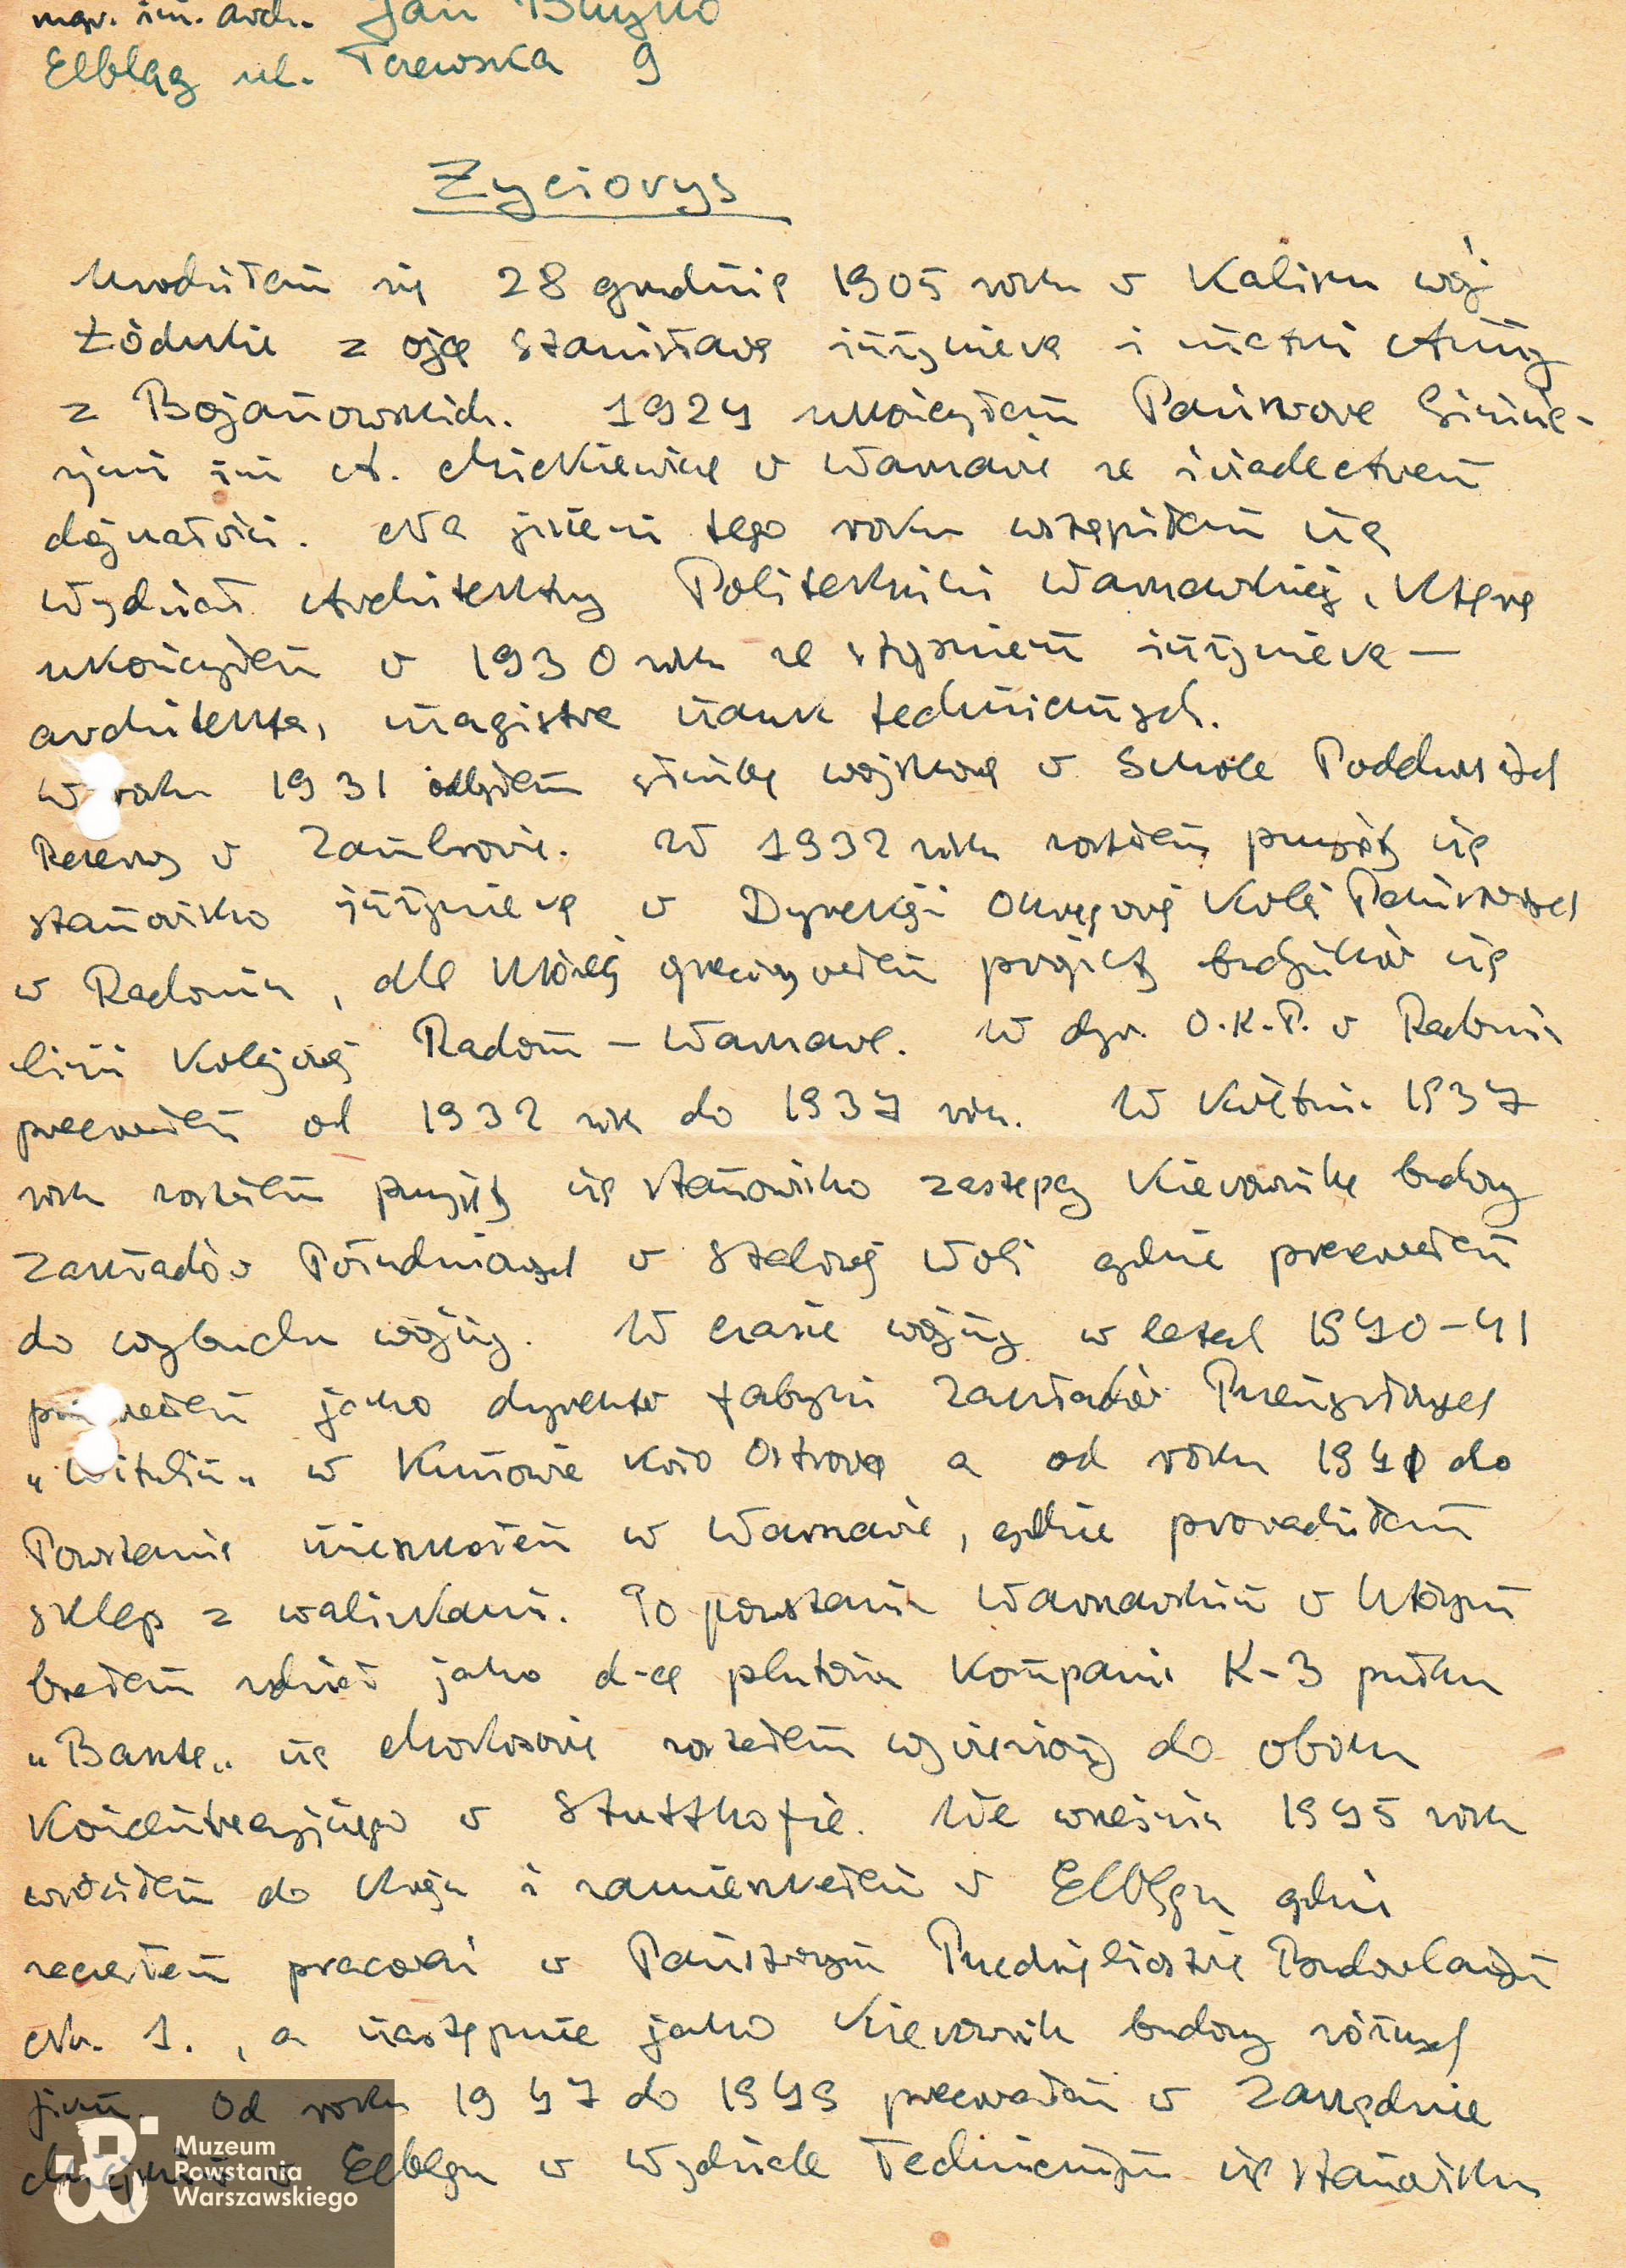 mgr. inż. arch. Jan
Elbląg ul. 9
Życiorys
Urodziłem się 28 grudnia 1905 roku w Kaliszu woj
Łódzkie z ojca Stanisława inżyniera i matki Anny
z Bojanowskich. 1924 ukończyłem Państwowe Gimna-
zjum im A. Mickiewicza w Warszawie ze świadectwem
dojrzałości. Na jesieni tego roku wstąpiłem na
Wydział Architektury Politechniki Warszawskiej, którą
ukończyłem w 1930 roku ze stopniem inżyniera —
architekta, magistra nauk technicznych.
W roku 1931 odbyłem służbę wojskową w Szkole Podchorążych
Rezerwy w Zambrowie. W 1932 roku zostałem przyjęty na
stanowisko inżyniera w Dyrekcji Okręgowej Kolei Państwowych
w Radomiu, dla której opracowywałem projekty budynków na
linii kolejowej Radom – Warszawa. W dyr. O.K.P. w Radomiu
pracowałem od 1932 rok do 1937 rok. W kwietniu 1937
roku zostałem przyjęty na stanowisko zastępcy kierownika budowy
Zakładów Południowych w Stalowej Woli gdzie pracowałem
do wybuchu wojny. W czasie wojny w latach 1940–41
pracowałem jako dyrektor fabryki Zakładów Przemysłowych
„Witulin„ w Kunowie koło Ostrowca a od roku 1941 do
Powstania mieszkałem w Warszawie, gdzie prowadziłem
sklep z walizkami. Po powstaniu Warszawskim w którym
brałem udział jako d-ca plutonu Kompanii K-3 pułku
„Baszta„ na Mokotowie zostałem wywieziony do obozu
koncentracyjnego w Stutthofie. We wrześniu 1945 roku
wróciłem do kraju i zamieszkałem w Elblągu gdzie
zacząłem pracować w Państwowym Przedsiębiorstwie Budowlanym
Nr. 1., a następnie jako kierownik budowy różnych
firm. Od roku 1947 do 1949 pracowałem w Zarządzie
Miejskim w Elblągu w Wydziale Technicznym na stanowisku
Muzeum
Powstania
Warszawskiego